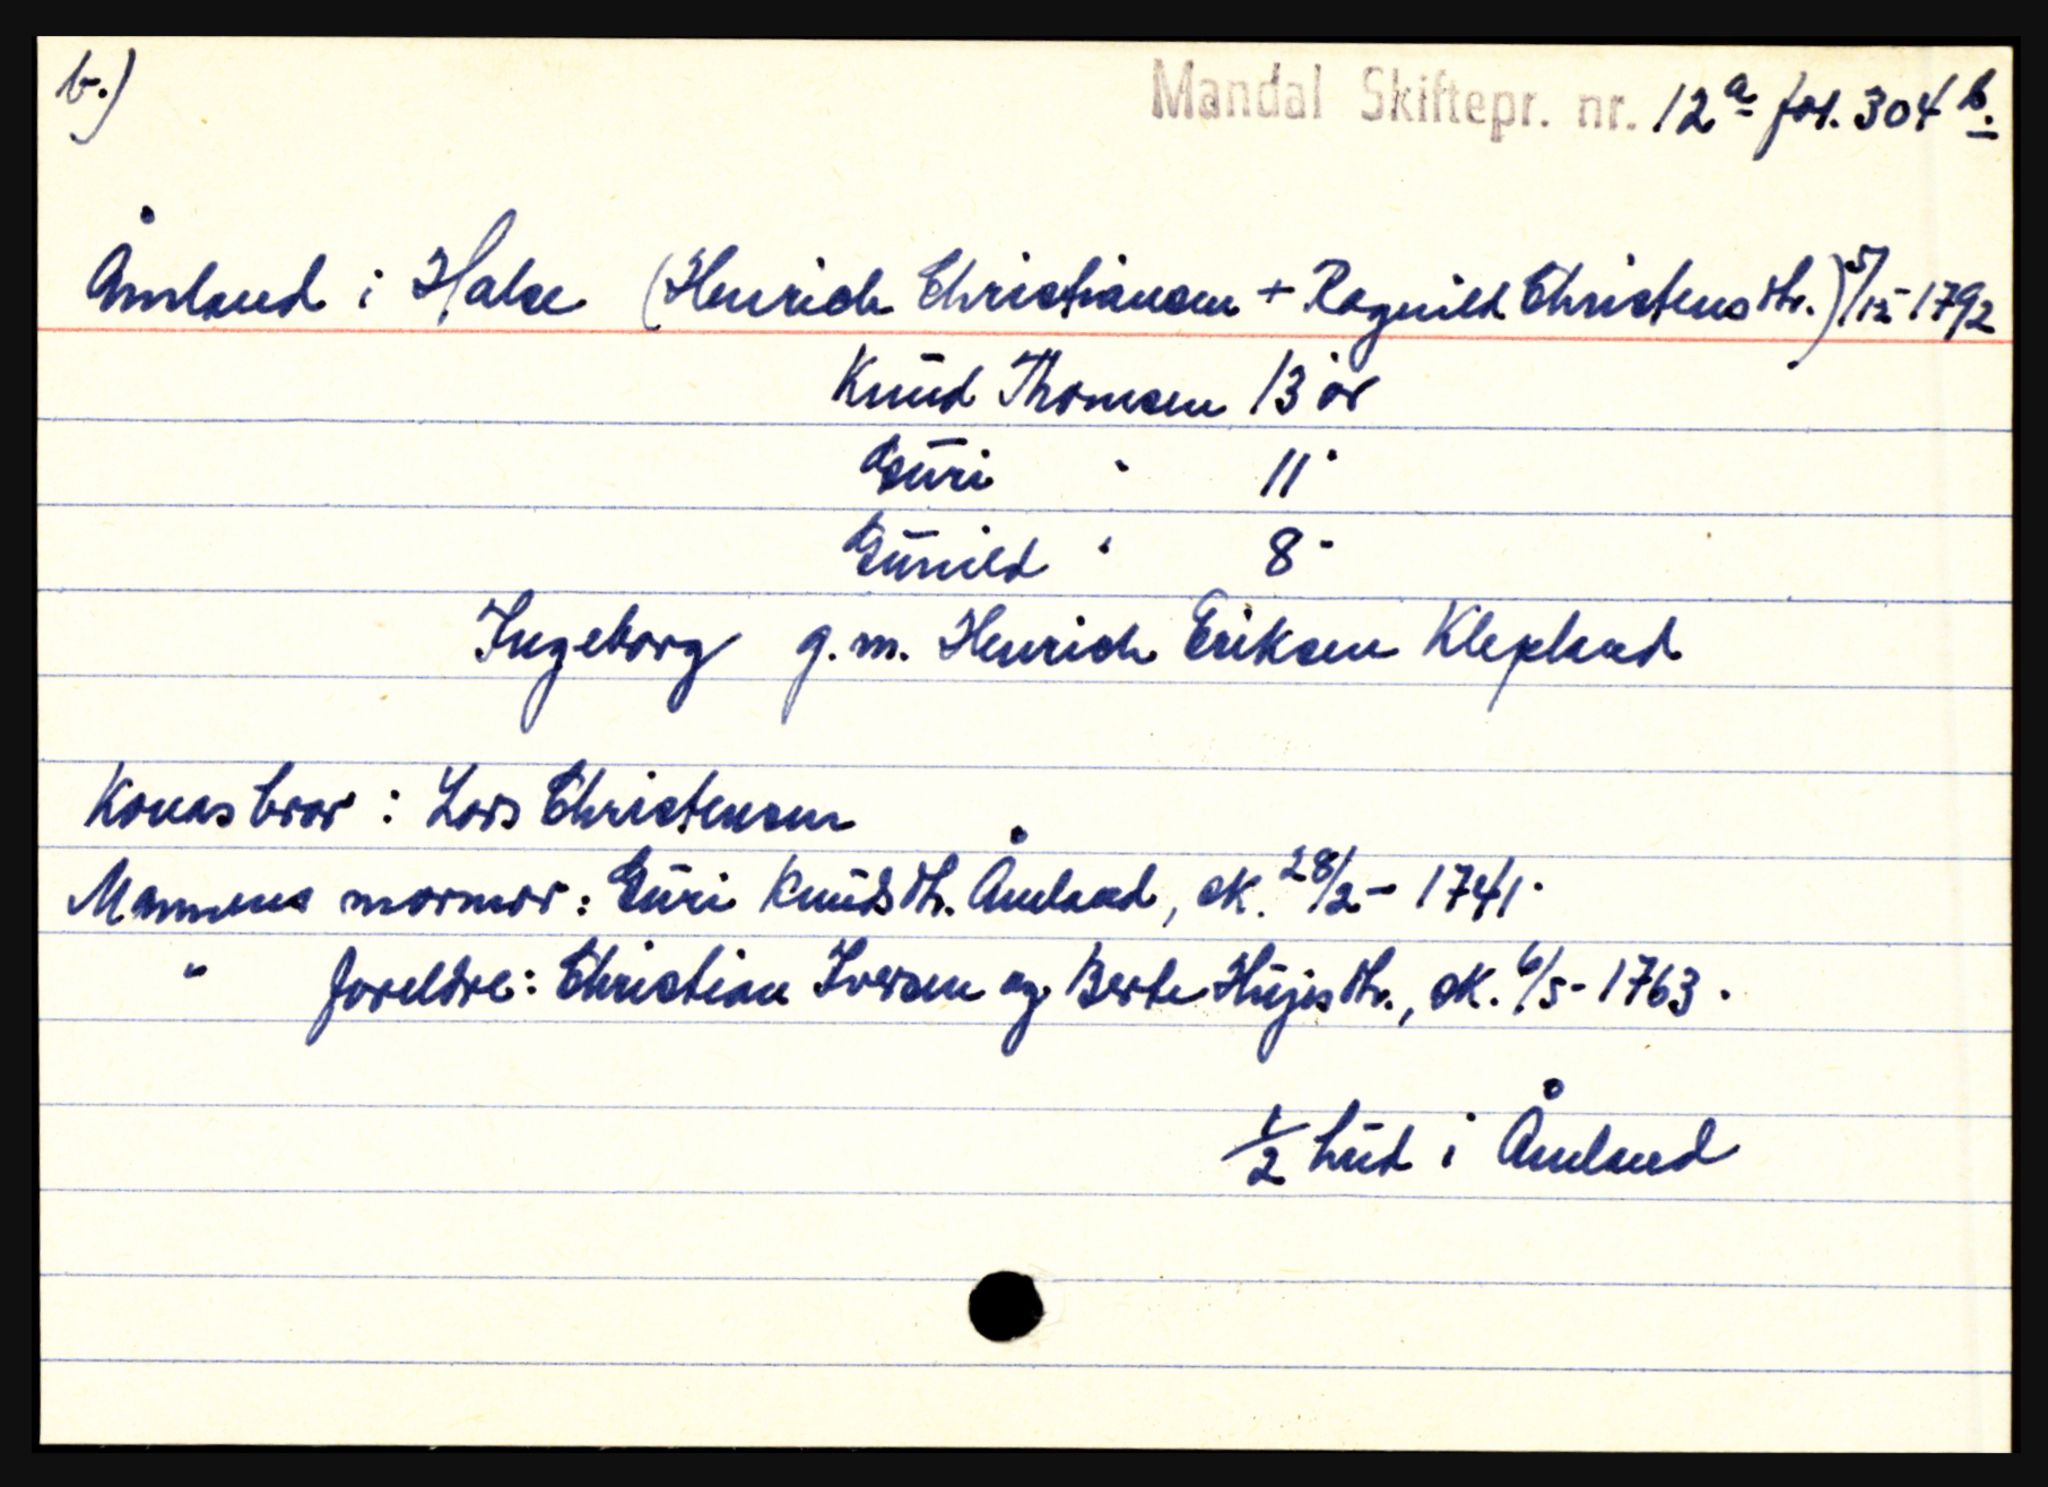 b.)
Mandal Skiftepr. nr. 12 a fol. 304 b.
Åmland i Halse (Henrich Christiansen + Ragnild Christensdtr.) 5/12-1792
Knud Thomsen 13 år
Guri " 11 "
Gunild " 8 "
Ingeborg g.m. Henrich Eriksen Klepland
Konas bror : Lars Christensen
Mannens mormor : Guri Knudsdtr. Åmland, sk. 28/2 - 1741.
" foreldre : Christian Iversen og Berte Hujesdtr., sk. 6/5 - 1763.
1/2 hud i Åmland